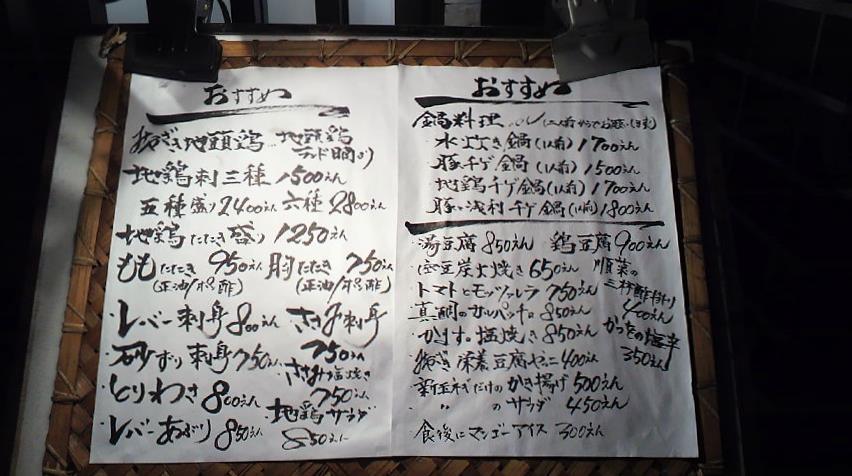 おすすめ
地頭鶏
地鶏刺三種1500えん
五種盛り2400えん 六種2800えん
地鶏たたき盛り1250えん
ももたたき 950えん 胸たたき 750えん
(正油/ポン酢) (正油/ポン酢)
レバー刺身800えん ささみ刺身
750えん
砂ずり刺身750えん ささみ塩焼き
750えん
とりわさ800えん 地鶏サラダ
レバーあぶり850えん 850えん
おすすめ
鍋料理
水炊き鍋(1人前)1700えん
豚チゲ鍋(1人前)1500えん
地鶏チゲ鍋(1人前)1700えん
豚浅利チゲ鍋(1人前)1800えん
湯豆腐850えん 鶏豆腐900えん
空豆炭火焼き650えん 順菜の
トマトとモッツァレラ750えん 三杯酢
真鯛のカルパッチョ850えん 400えん
かます塩焼き850えん かつおの塩辛
豆腐 400えん 350えん
新玉ネギだけのかき揚げ500えん
〃 のサラダ 450えん
食後にマンゴーアイス 300えん